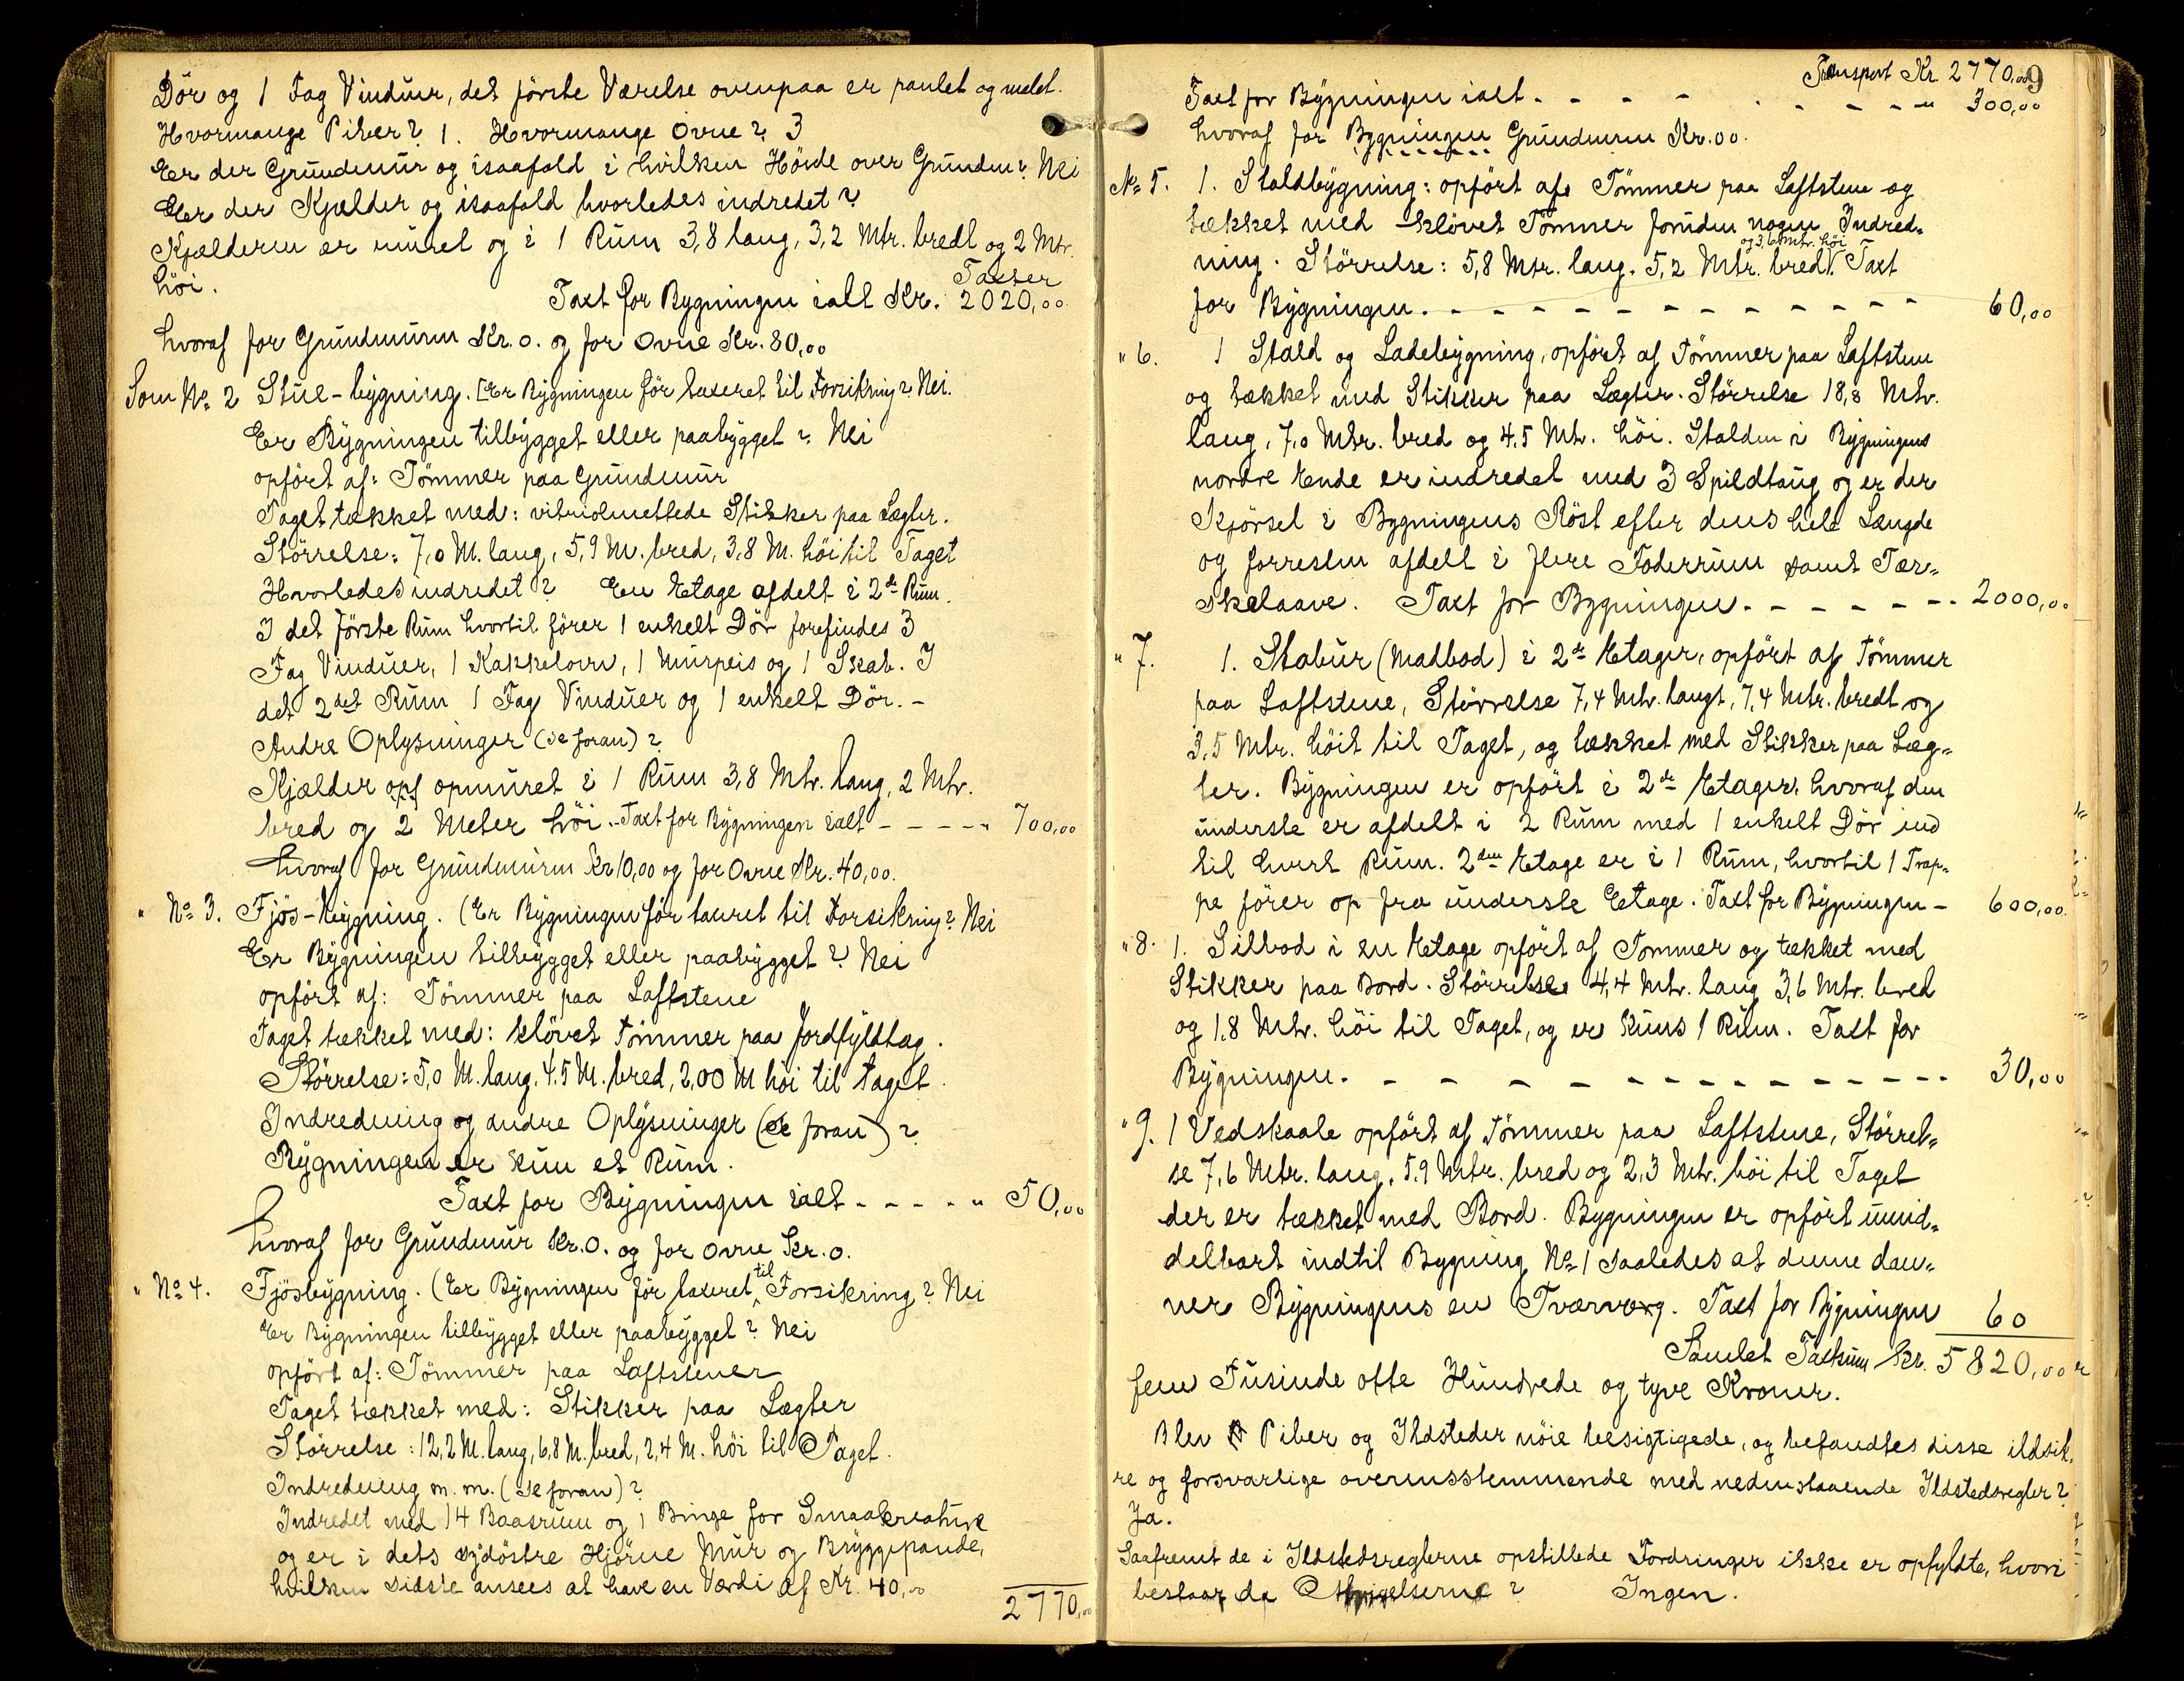 Dör og 1 Fag Vinduer, det förste Værelse ovenpaa er panlet og malet.
Hvormange Piber? 1. Hvormange Ovne? 3
Er der Grundmur og isaafald i hvilken Höide over Grunden? Nei
Er der Kjælder og isaafald hvorledes indredet?
Kjælderen er muret og i 1 Rum 3,8 lang, 3,2 Mtr. bredt og 2 Mtr.
höi. Taxter
Taxt for Bygningen ialt Kr. 2020,00
hvoraf for Grundmuren Kr. 0. og for Ovne Kr. 80,00
Som No. 2 Stue-bygning. [Er Bygningen för taxeret til Forsikring? Nei.
Er Bygningen tilbygget eller paabygget? Nei
opfört af: Tömmer paa Grundmur
Taget tækket med: vitriolmettede Stikker paa Lægter.
Störrelse: 7,0 M. lang, 5,9 M. bred, 3,8 M. höi til Taget
Hvorledes indredet? En Etage afdelt i 2de Rum.
I det förste Rum hvortil förer 1 enkelt Dör forefindes 3
Fag Vinduer, 1 Kakkelovn, 1 Murpeis og 1 Skab. I
det 2det Rum 1 Fag Vinduer og 1 enkelt Dör. -
Andre Oplysninger (se foran)?
Kjælder opf opmuret i 1 Rum 3,8 Mtr. lang, 2 Mtr.
bred og 2 Meter höi. - Taxt for Bygningen ialt - - - - " 700,00
hvoraf for Grundmuren Kr 10,00 og for Ovne Kr. 40,00.
" No. 3. Fjös-bygning. (Er Bygningen för taxeret til Forsikring? Nei
Er Bygningen tilbygget eller paabygget? Nei
opfört af: Tömmer paa Laftstene
Taget tækket med: klövet Tömmer paa Jordfyldtag.
Störrelse: 5,0 M. lang, 4.5 M. bred, 2,00 M höi til taget.
Indredning og andre Oplysninger (se foran)?
Bygningen er kun et Rum.
Taxt for Bygningen ialt - - - - " 50,00
hvoraf for Grundmur Kr. 0. og for ovne Kr. 0.
" No. 4. Fjösbygning. (Er Bygningen för taxeret til Forsikring? Nei
Er Bygningen tilbygget eller paabygget? Nei
opfört af: Tömmer paa Laftstener
Taget tækket med: Stikker paa Lægter
Störrelse: 12,2 M. lang, 6,8 M. bred, 2,4 M. höi til Taget.
Indredning m. m. (se foran)?
Indredet med 14 Baasrum og 1 Binge for Smaakreature
og er i dets sydöstre Hjörne Mur og Bryggepande,
hvilken sidste ansees at have en Værdi af Kr. 40,00
2770,00
Transport Kr. 2770,00 9
Taxt for Bygningen ialt - - - - - - - - " 300,00
hvoraf for Bygningen Grundmuren Kr. 00.
No. 5. 1. Staldbygning: opfört af Tömmer paa Laftstene og
tækket med klövet Tömmer foruden nogen Indred=
og 3,6 Mtr. höi
ning. Störrelse: 5,8 Mtr. lang. 5,2 Mtr. bred. Taxt
for Bygningen. - - - - - - - - - - - - 60,00
" 6. 1 Stald og Ladebygning, opfört af Tömmer paa Laftstene
og tækket med Stikker paa Lægter. Störrelse 18,8 Mtr.
lang, 7,0 Mtr. bred og 4.5 Mtr. höi. Stalden i Bygningens
nordre Ende er indredet med 3 Spildtaug og er der
Kjörsel i Bygningens Röst efter dens hele Længde
og forresten afdelt i flere Foderrum samt Tær=
skelaave. Taxt for Bygningen - - - - - - - 2000,00
" 7. 1. Stabur (Madbod) i 2de Etager, opfört af Tömmer
paa Laftstene, Störrelse 7,4 Mtr. langt, 7,4 Mtr. bredt og
3,5 Mtr. höit til Taget, og tækket med Stikker paa Læg=
ter. Bygningen er opfört i 2de Etager, hvoraf den
underste er afdelt i 2 Rum med 1 enkelt Dör ind
til hvert Rum. 2den Etage er i 1 Rum, hvortil 1 Trap=
pe förer op fra underste Etage. Taxt for Bygningen - 600,00.
" 8. 1. Silbod i en Etage opfört af Tommer og tækket med
Stikker paa Bord. Störrelse 4,4 Mtr. lang 3,6 Mtr. bred
og 1.8 Mtr. höi til Taget, og er kuns 1 Rum. Taxt for
Bygningen. - - - - - - - - - - - - - 30,00
" 9. 1 Vedskaale opfört af Tömmer paa Laftstene, Störrel=
se 7,6 Mtr. lang, 5.9 Mtr. bred og 2,3 Mtr. höi til Taget
der er tækket med Bord. Bygningen er opfört umid=
delbart indtil Bygning No. 1 saaledes at denne dan=
ner Bygningens en Tværvæg. Taxt for Bygningen 60
Samlet Taxtsum Kr. 5820,00
fem Tusinde otte Hundrede og tyve Kroner.
Blev Piber og Ildsteder nöie besigtigede, og befandtes disse ildsik=
re og forsvarlige overensstemmende med nedenstaaende Ildstedsregler?
Ja.
Saafremt de i Ildstedsreglerne opstillede Fordringer ikke er opfyldte, hvori
bestaar da Afvigelserne? Ingen.